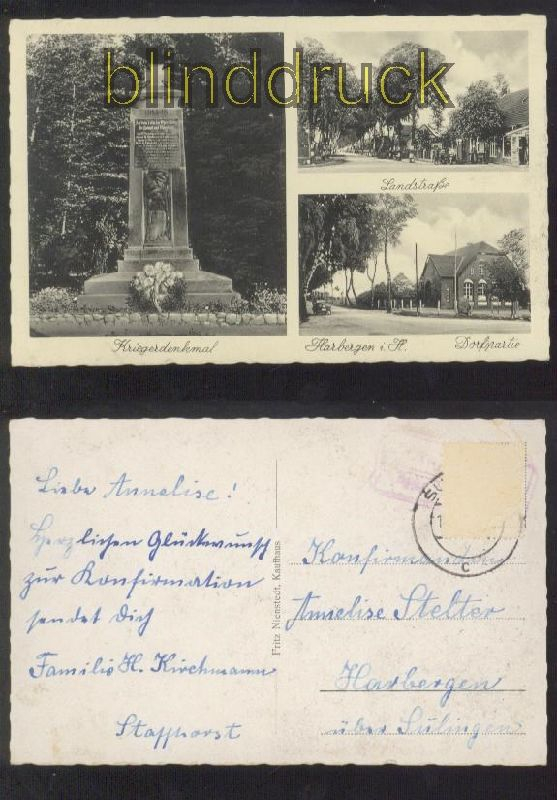 blinddruck
Landstraße
Kriegerdenkmal
Harbergen i. H.
Dorfpartie
Liebe Annelise!
Herzlichen Glückwunsch
zur Konfirmation
sendet Dich
Familie H. Kirchmann
Staffhorst
Fritz Nienstedt, Kaufhaus
c
Annelise Stelter
Harbergen
über Sulingen